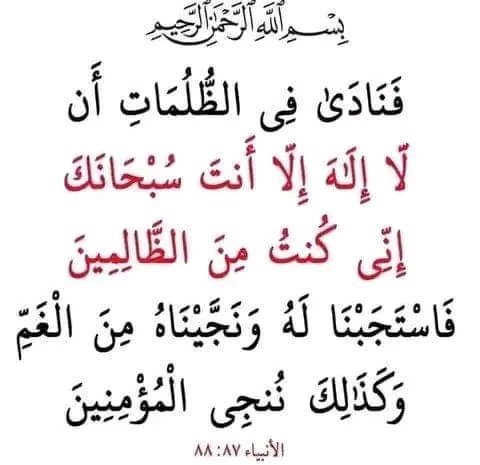 بِسْمِ اللَّهِ الرَّحْمَٰنِ الرَّحِيمِ
فَنَادَىٰ فِى الظُّلُمَاتِ أَن
لَّا إِلَٰهَ إِلَّا أَنتَ سُبْحَانَكَ
إِنِّى كُنتُ مِنَ الظَّالِمِينَ
فَاسْتَجَبْنَا لَهُ وَنَجَّيْنَاهُ مِنَ الْغَمِّ
وَكَذَٰلِكَ نُنجِى الْمُؤْمِنِينَ
الأنبياء ٨٧: ٨٨